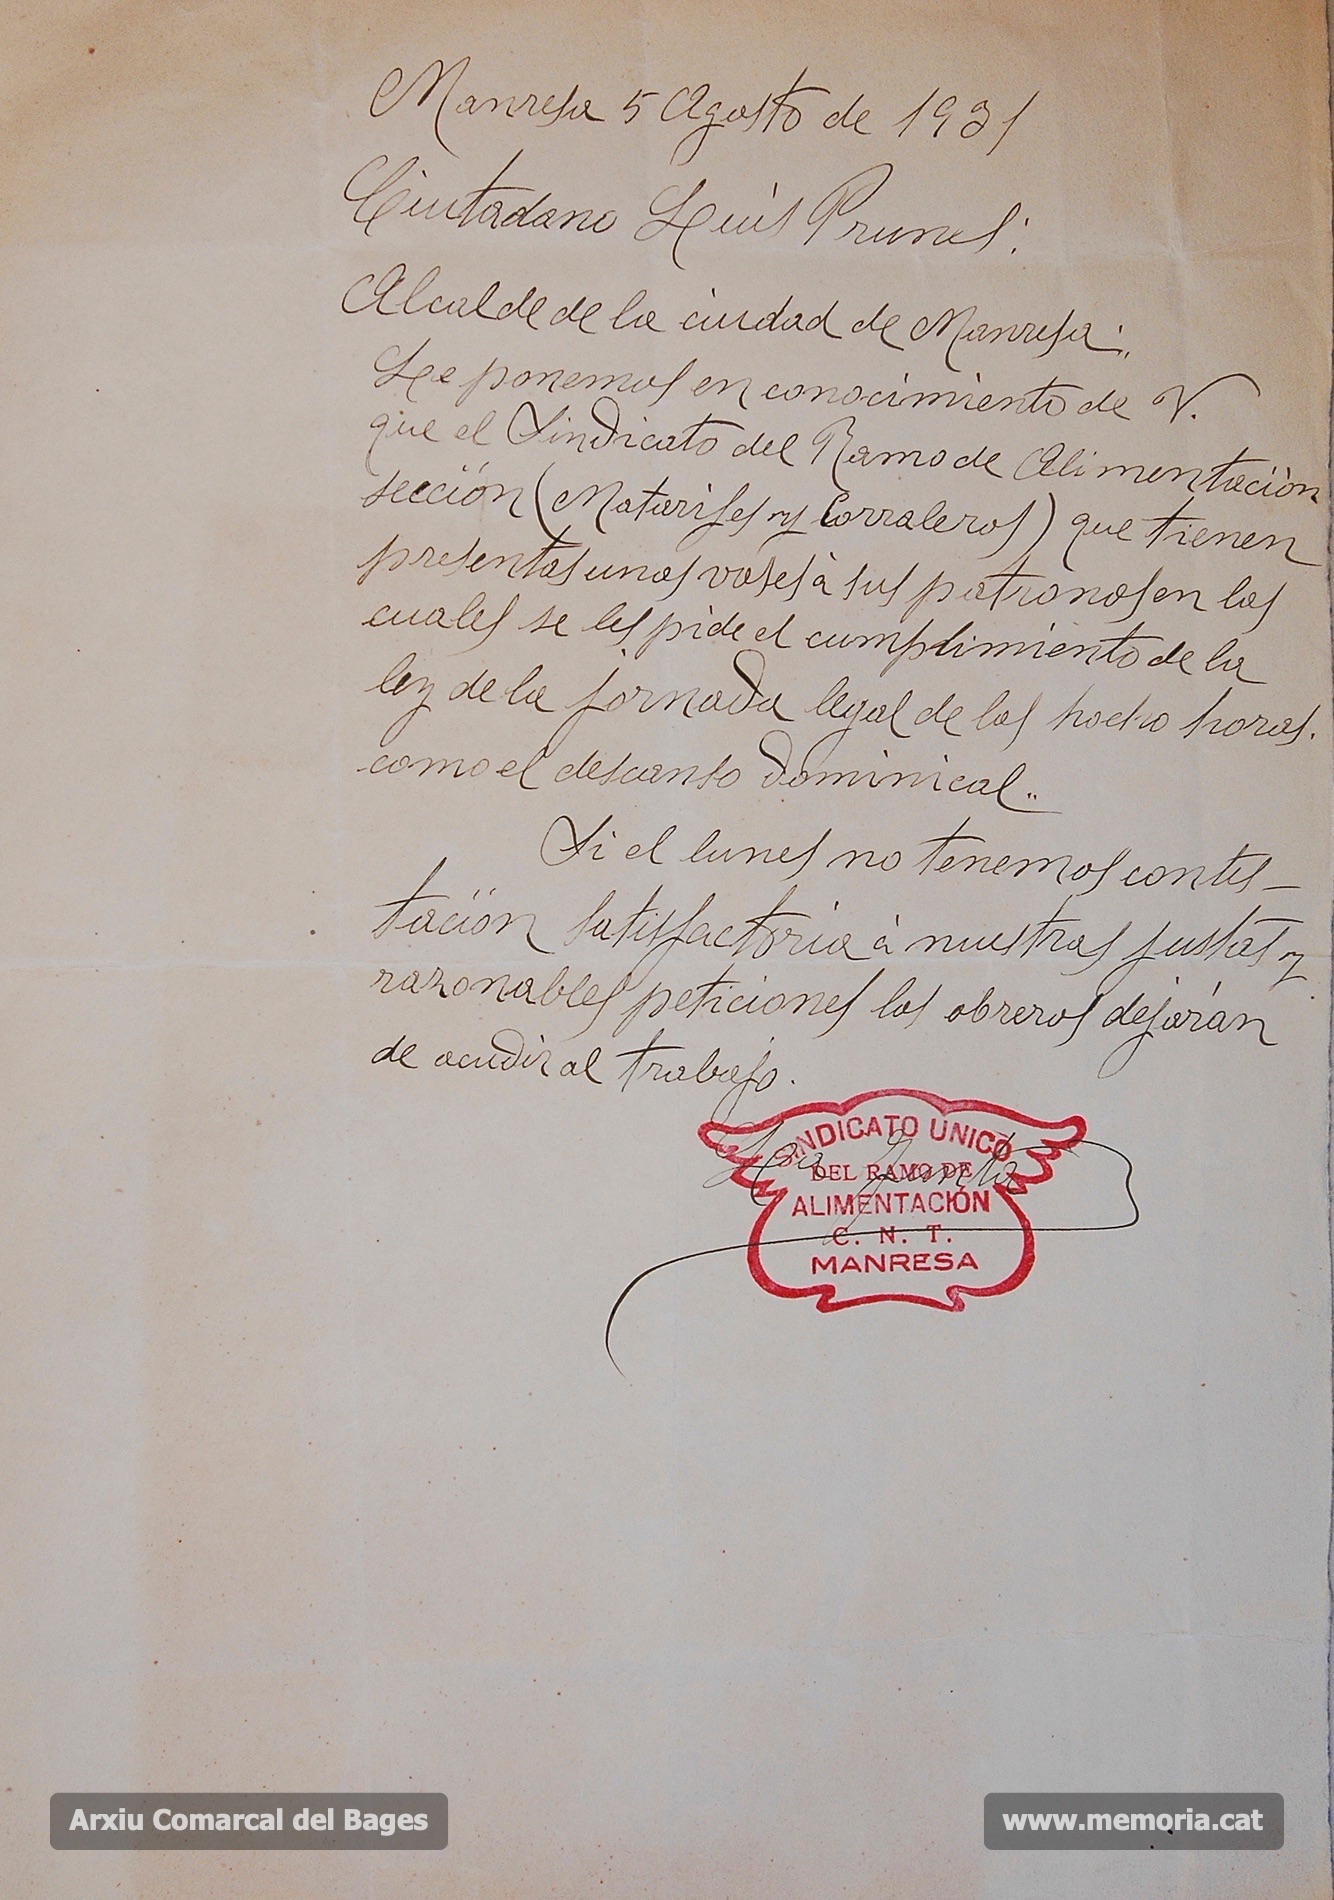 Manresa 5 Agosto de 1931
Ciutadano Luis Prunes:
Alcalde de la ciudad de Manresa:
Le ponemos en conocimiento de V.
que el Sindicato del Ramo de Alimentación
sección (Matarifes y Corraleros) que tienen
presentas unas vases à sus patronos en las
cuales se les pide el cumplimiento de la
ley de la jornada legal de las hocho horas.
como el descanso dominical..
Si el lunes no tenemos contes-
tación satisfactoria à nuestras justas y
razonables peticiones los obreros dejarán
de acudir al trabajo.
La Junta
SINDICATO UNICO
DEL RAMO DE
ALIMENTACIÓN
C. N. T.
MANRESA
Arxiu Comarcal del Bages
www.memoria.cat